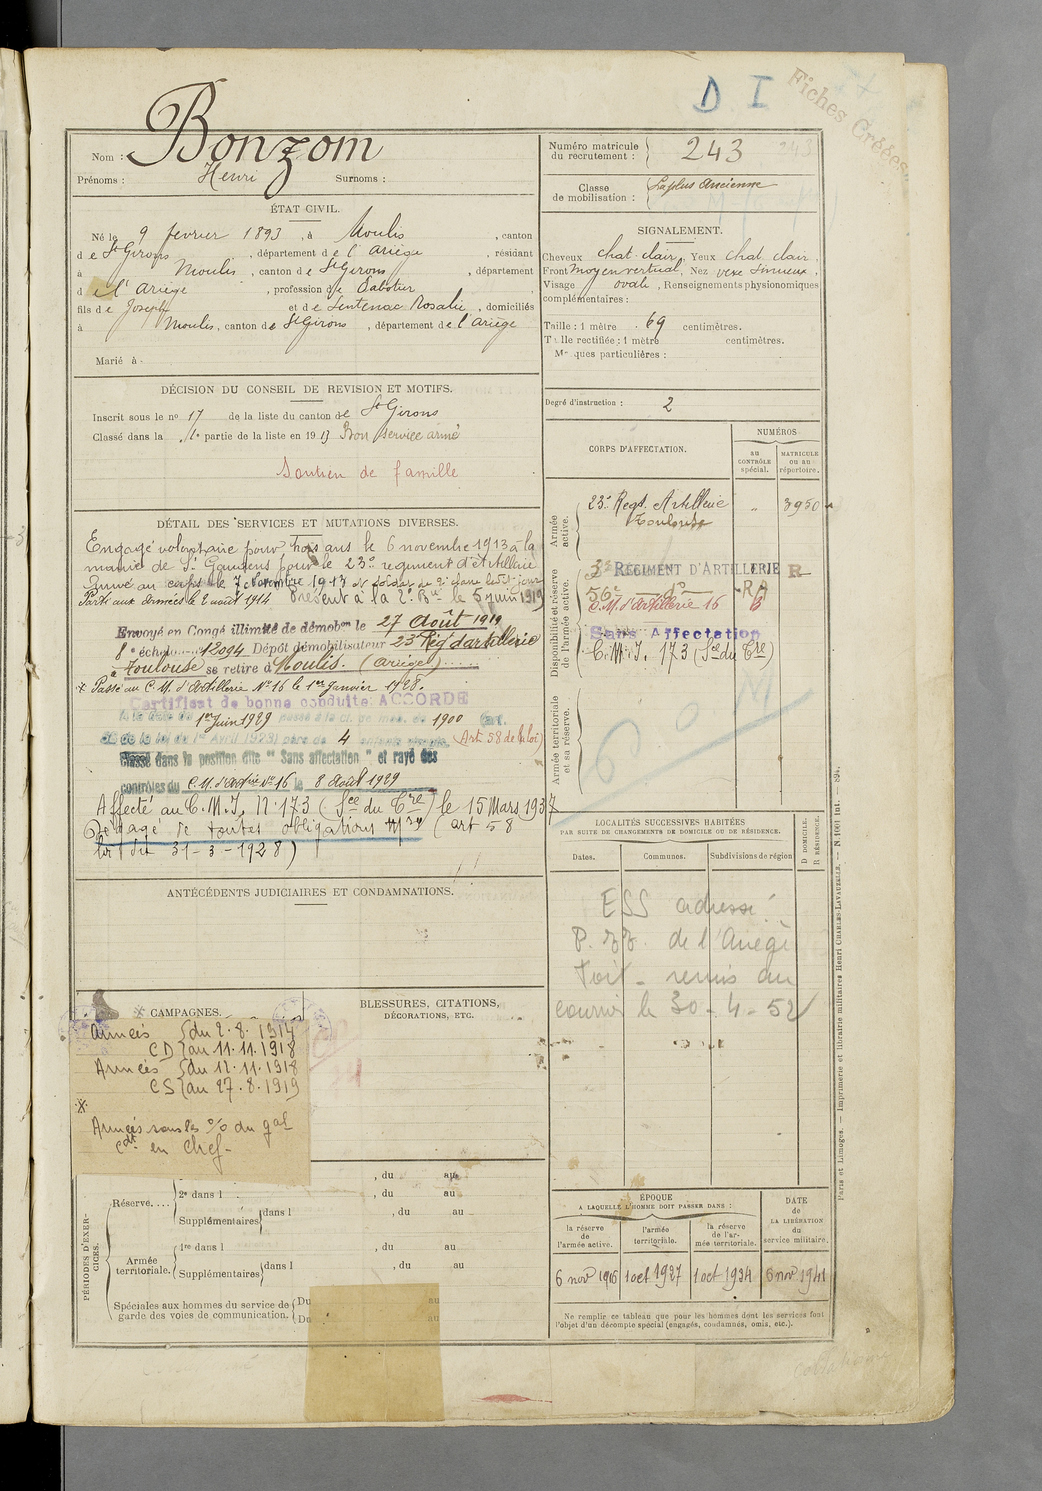 D I
Fiches Créées
Nom : Bonzom
Prénoms : Henri Surnoms :
ÉTAT CIVIL.
Né le 9 fevrier 1893, à Moulis, canton
de St Girons, département de l'Ariège, résidant
à Moulis, canton de St Girons, département
d e l'Ariège, profession de Sabotier
fils de Joseph et de Sentenac Rosalie, domiciliés
à Moulis, canton de St Girons, département de l'Ariège
Marié à
DÉCISION DU CONSEIL DE REVISION ET MOTIFS.
Inscrit sous le no 17 de la liste du canton de St Girons
Classé dans la 1e partie de la liste en 1913 Bon service armé
Soutien de famille
DÉTAIL DES SERVICES ET MUTATIONS DIVERSES.
Engagé volontaire pour trois ans le 6 novembre 1913 à la
mairie de St Gaudens pour le 23e regiment d'Artillerie
Arrivé au corps le 7 Novembre 1913
Parti aux armées le 2 août 1914 Présent à la 2e Bie le 5 juin 1919
Envoyé en Congé illimité de démobon le 27 Août 1919
8e échelon 12094 Dépôt démobilisateur 23 Rég d'artillerie
à Toulouse se retire à Moulis. (Ariège)
* Passé au C. M. d'Artillerie No 16 le 1er Janvier 1928.
Certificat de bonne conduite ACCORDÉ
A la date du 1er Juin 1929 passé à la cl. de mob. de 1900 (art.
58 de la loi du 1er Avril 1923) père de 4 enfants vivants (Art. 58 de la loi)
Classé dans la position dite "Sans affectation" et rayé des
contrôles du C.M. d'Artie No 16 le 8 Août 1929
Affecté au C.M.I. N° 173 (Sce du Tre) le 15 Mars 1937
Dégagé de toutes obligations mres (art 58
loi du 31-3-1928)
ANTÉCÉDENTS JUDICIAIRES ET CONDAMNATIONS.
* CAMPAGNES.
Armées {du 2.8.1914
CD {au 11.11.1918
Armées {du 12.11.1918
CS {au 27.8.1919
*
Armées sous les o/o du gal
Cdt en Chef-
BLESSURES, CITATIONS,
DÉCORATIONS, ETC.
PÉRIODES D'EXERCICES.
, du au
Réserve.... 2e dans l , du au
Supplémentaires dans l , du au
Armée territoriale. 1re dans l , du au
Supplémentaires dans l , du au
Spéciales aux hommes du service de garde des voies de communication. Du au
Do au
Numéro matricule du recrutement : 243
Classe de mobilisation : La plus Ancienne
SIGNALEMENT.
Cheveux chat. clair, Yeux chat. clair,
Front moyen vertical, Nez vexe sinueux,
Visage ovale, Renseignements physionomiques
complémentaires :
Taille : 1 mètre 69 centimètres.
Taille rectifiée : 1 mètre centimètres.
Marques particulières :
Degré d'instruction : 2
CORPS D'AFFECTATION.
NUMÉROS
au CONTRÔLE spécial.
MATRICULE OU AU répertoire.
Armée active.
23e Regt. Artillerie " 3950
Toulouse
Disponibilité et réserve de l'armée active.
REGIMENT D'ARTILLERIE
C.M. d'Artillerie 16
Sans Affectation
C.M.I. 173 (Sce du Tre)
Armée territoriale et sa réserve.
LOCALITÉS SUCCESSIVES HABITÉES
PAR SUITE DE CHANGEMENTS DE DOMICILE OU DE RÉSIDENCE.
Dates. Communes. Subdivisions de région
D DOMICILE. R RÉSIDENCE.
ESS adressé
de l'Ariège
remis au
courrier le 30-4-52
ÉPOQUE
A LAQUELLE L'HOMME DOIT PASSER DANS :
la réserve de l'armée active.
l'armée territoriale.
la réserve de l'armée territoriale.
DATE de LA LIBÉRATION du service militaire.
6 nov 1916 1 oct 1927 1 oct 1934 6 nov 1941
Ne remplir ce tableau que pour les hommes dont les services font
l'objet d'un décompte spécial (engagés, condamnés, omis, etc.).
Paris et Limoges. — Imprimerie et librairie militaires Henri CHARLES-LAVAUZELLE.